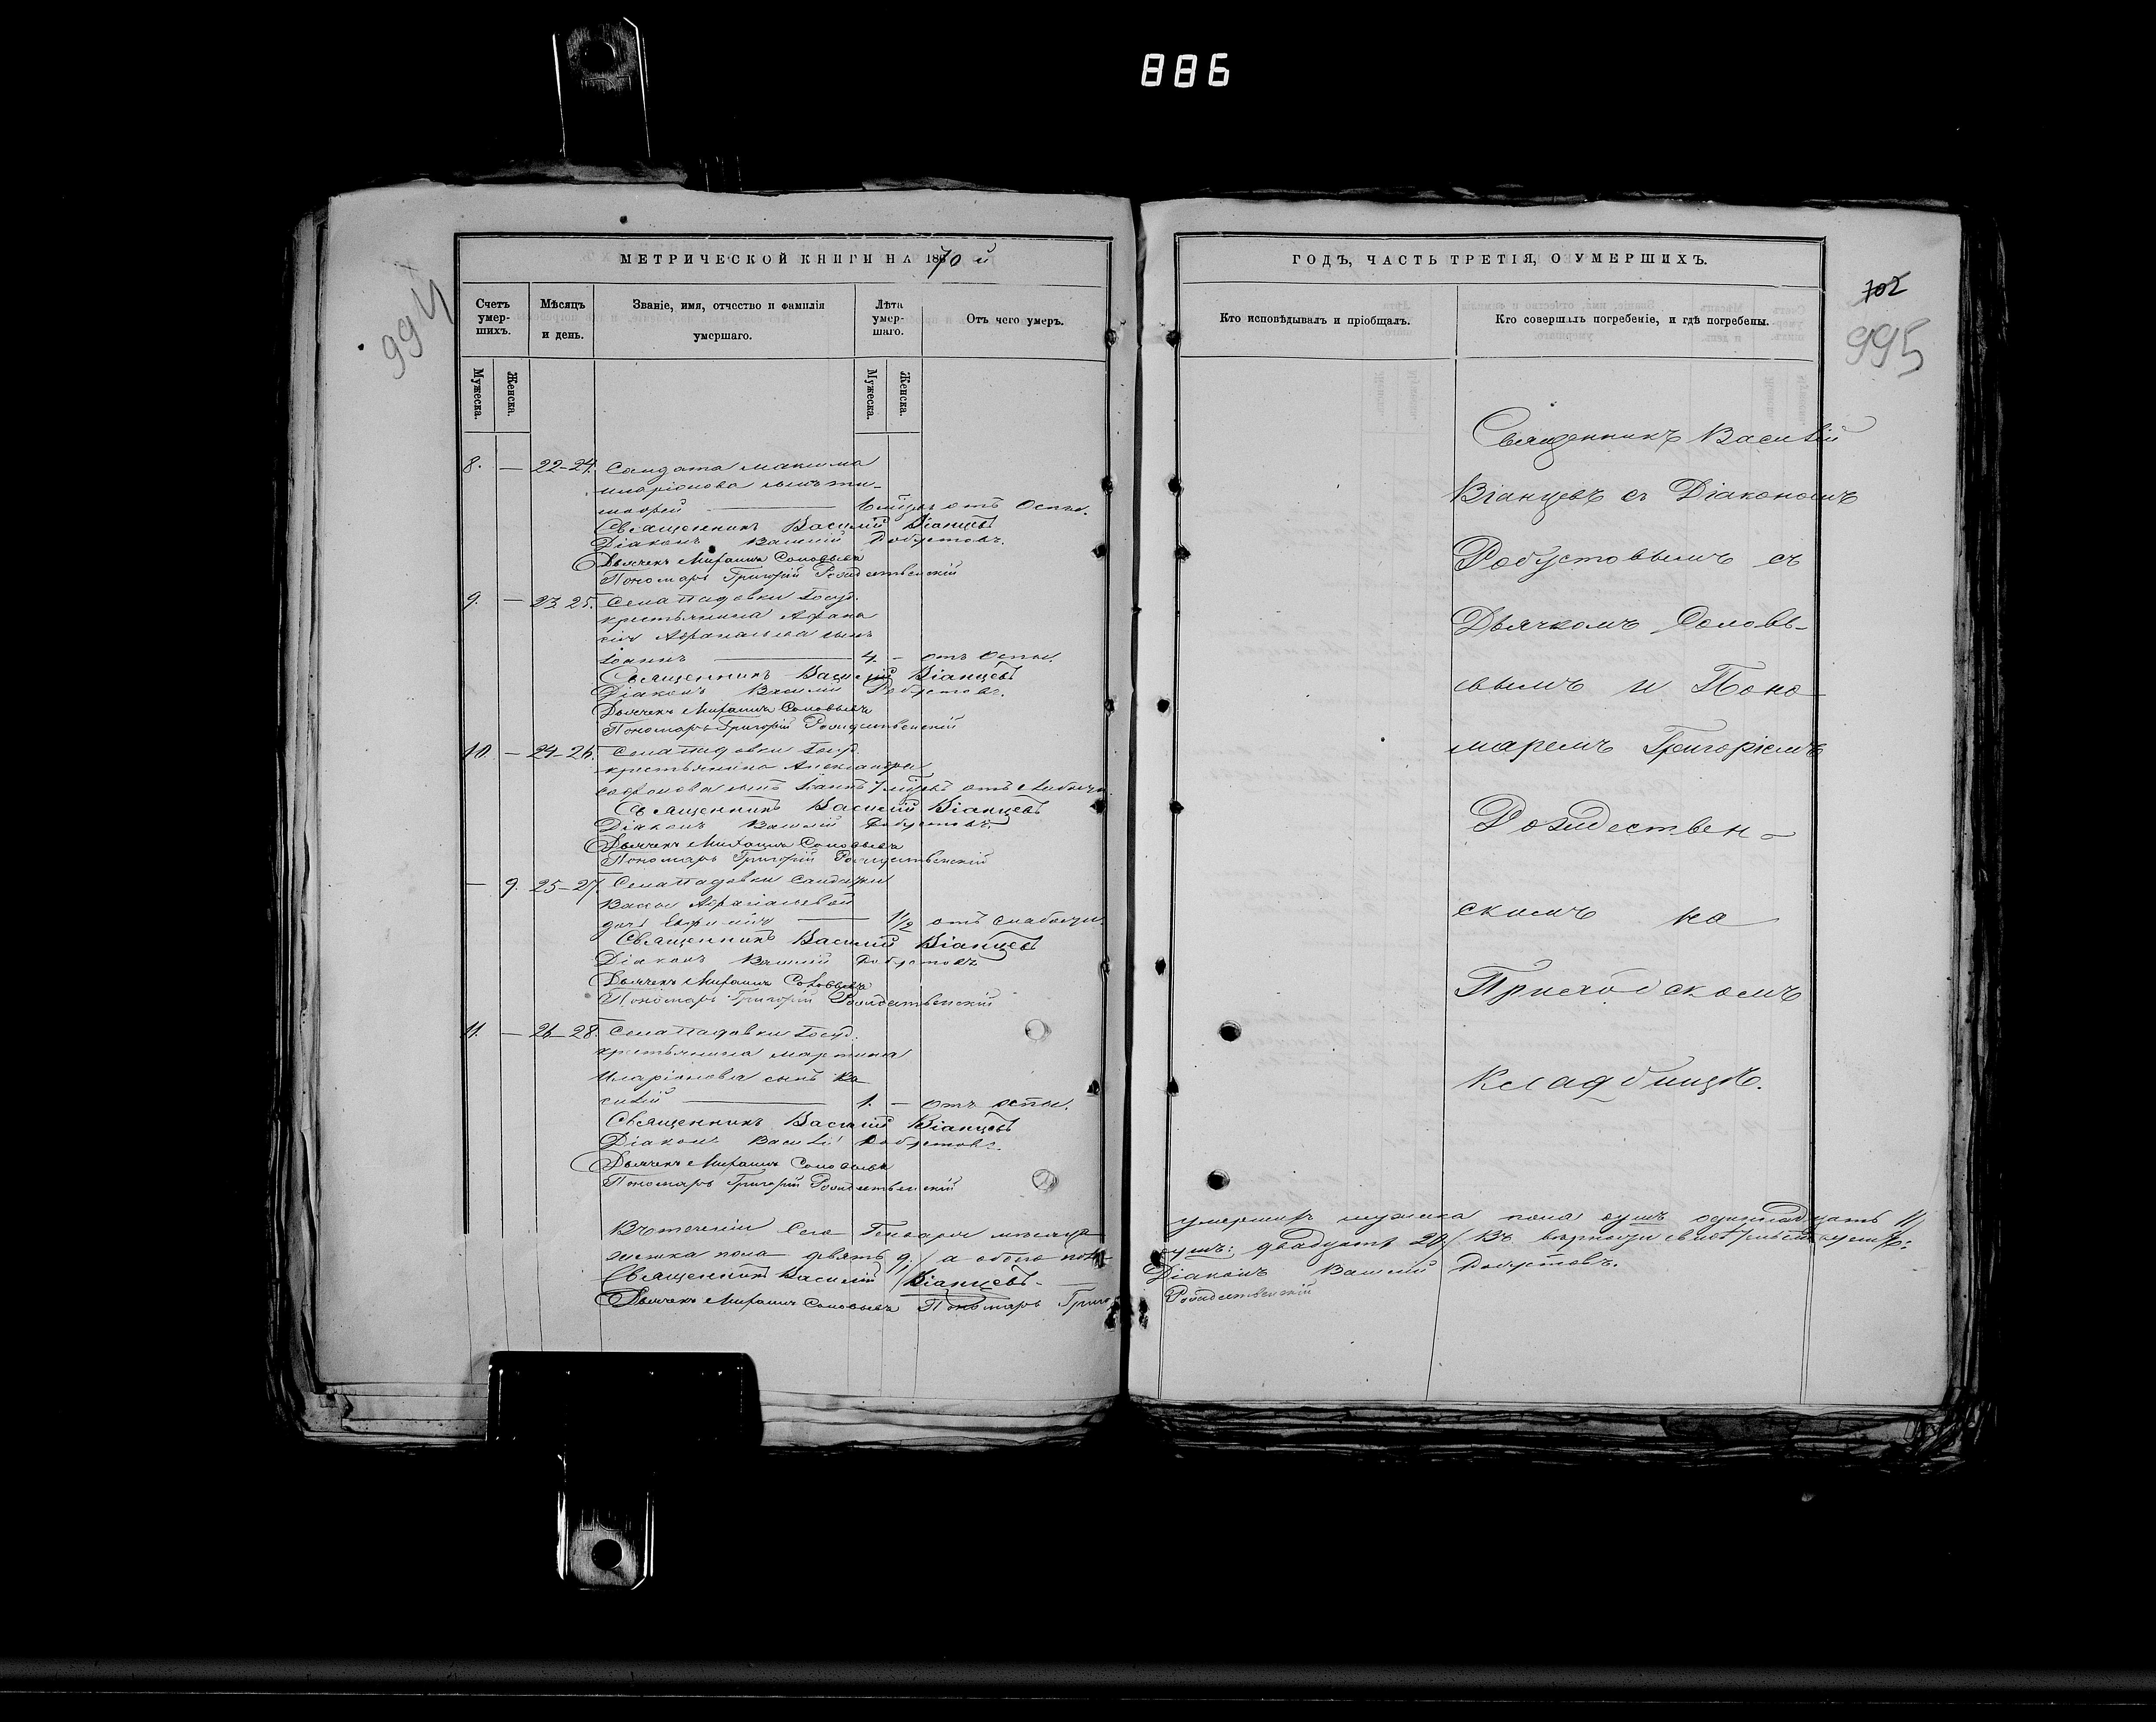 886
МЕТРИЧЕСКОЙ КНИГИ НА 1870 й
994
Счетъ умер-шихъ.
Мѣсяцъ и день.
Званіе, имя, отчество и фамилія умершаго.
Лѣта умер-шаго.
Отъ чего умеръ.
Мужеска.
Женска.
Мужеска.
Женска.
8. — 22-24. Солдата Максима
Иларіонова сынъ Ти-
моѳей — отъ Оспы.
Священникъ Василий Віанцевъ
Діаконъ Василій Робустовъ.
Дьячекъ Михаилъ Соловьевъ
Пономарь Григорій Рождественскій
9. — 23. 25. Села Падовки Госуд.
крестьянина Афана
сія Афанасьева сынъ
Іоаннъ — 4. — отъ Оспы.
Священникъ Василий Віанцевъ
Діаконъ Василій Робустовъ.
Дьячекъ Михаилъ Соловьевъ
Пономарь Григорій Рождественскій
10 — 24-26. Села Падовки Госуд.
крестьянина Александра
сынъ Іоаннъ отъ слабости
Священникъ Василий Віанцевъ
Діаконъ Василій Робустовъ.
Дьячекъ Михаилъ Соловьевъ
Пономарь Григорій Рождественскій
— 9. 25-27. Села Падовки Солдатки
Афанасьевой
дочь — 1 1/2 отъ слабости
Священникъ Василий Віанцевъ
Діаконъ Василій Робустовъ
Дьячекъ Михаилъ Соловьевъ
Пономарь Григорій Рождественскій
11. — 26-28. Села Падовки Госуд.
крестьянина Мартина
Иларіонова сынъ Ва
силій — 1. — отъ оспы.
Священникъ Василий Віанцевъ
Діаконъ Василій Робустовъ.
Дьячекъ Михаилъ Соловьевъ
Пономарь Григорій Рождественскій
Въ теченіи Сего Генваря мѣсяца
женска пола девять 9,/ а обоего пола
Священникъ Василий Віанцевъ.
Дьячекъ Михаилъ Соловьевъ Пономарь Григо
ГОДЪ, ЧАСТЬ ТРЕТІЯ, О УМЕРШИХЪ.
702
995
Кто исповѣдывалъ и пріобщалъ.
Кто совершалъ погребеніе, и гдѣ погребены.
Священникъ Василій
Віанцевъ съ Діакономъ
Робустовымъ съ
Дьячкомъ Соловь-
евымъ и Поно-
маремъ Григоріемъ
Рождествен-
скимъ на
Приходскомъ
Кладбищѣ.
умершихъ мужска пола душъ одиннадцать 11/
душъ: двадцать 20/ Въ
Діаконъ Василій Робустовъ.
Рождественскій